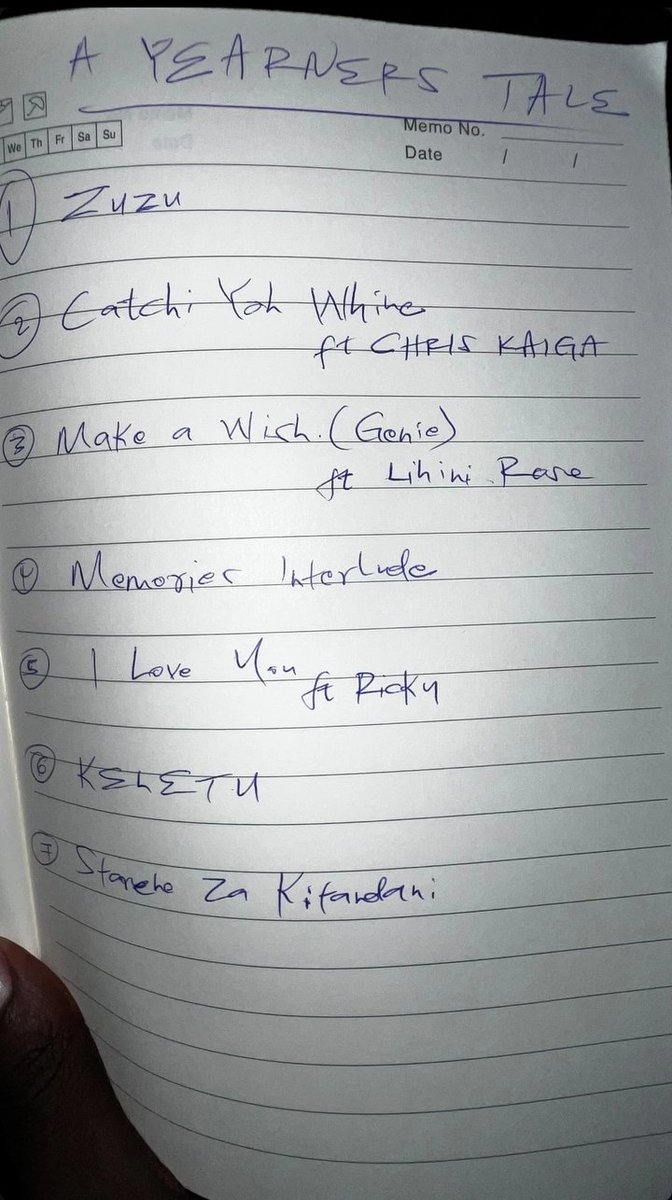 A YEARNERS TALE
We Th Fr Sa Su
Memo No.
Date / /
1 Zuzu
2 Catchi Yoh Whine
ft CHRIS KAIGA
3 Make a Wish. (Genie)
ft Lihini Rare
4 Memories Interlude
5 I Love You
ft Ricky
6 KELETU
7 Starehe Za Kitandani